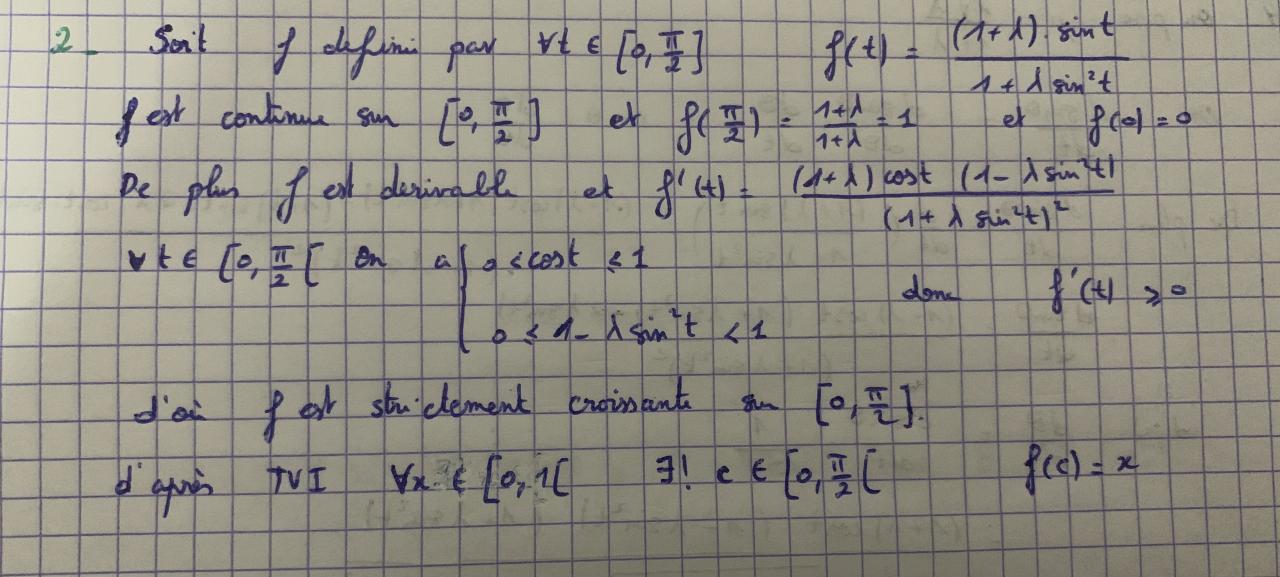 2- Soit f defini par ∀t ∈ [0, π/2] f(t) = (1+λ) sint / (1 + λ sin²t)
f est continue sur [0, π/2] et f(π/2) = (1+λ)/(1+λ) = 1 et f(0) = 0
De plus f est derivable et f'(t) = (1+λ) cost (1 - λ sin²t) / (1 + λ sin²t)²
∀ t ∈ [0, π/2[ On a { 0 < cost ≤ 1
0 ≤ 1 - λ sin²t < 1 donc f'(t) ≥ 0
d'où f est strictement croissante sur [0, π/2].
d'après TVI ∀x ∈ [0, 1[ ∃! c ∈ [0, π/2[ f(c) = x